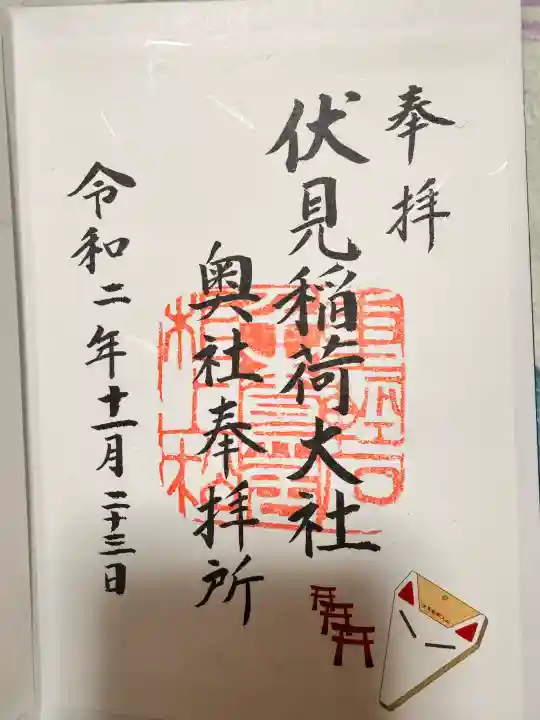 奉拝
伏見稲荷大社
奥社奉拝所
令和二年十一月二十三日